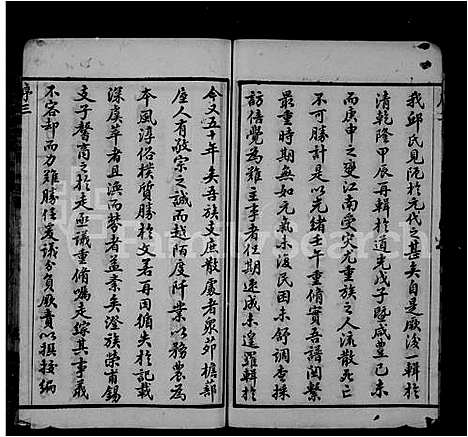 我邱氏見阨於元代之甚矣自是厥後一輯於
清乾隆甲辰再輯於道光戊子暨咸豐己未
而庚申之變江南受災尤重族之人流散死亡
不可勝計是以光緒壬午重脩實吾譜關繫
最重時期無如元氣未復民困未舒調查採
訪倍覺為難主季者任期速成未遑羅輯於
今又五十年矣吾族支庶散處者衆茆檐蔀
屋人有敬宗之誠而越陌度阡業以務農為
本風淳俗樸質勝於文若再因循失於記載
深虞莘者且浜而棼者益紊矣澄族榮甫錫
文子謦商之於走亟議重脩囑走綜其事義
不容却而力難勝任爰議分負厥責以撰技編
序三
FamilySearch